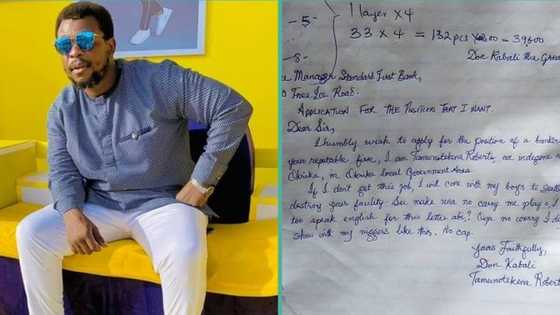 -5-
1 layer x4
33 x 4 = 132 pcs
- 39600
Don Kabali the Great
-8-
Manager Standard First Bank,
Free Zoe Road.
APPLICATION FOR THE POSITION THAT I WANT.
Dear Sir,
I humbly wish to apply for the position of a banker
your reputable firm, I am Tamunotekena Roberts, an
Okrika, in Okrika Local Government Area
If I don't get this job, I will come with my boys to
destroy your faculty. See make una no carry me play o, I
too speak english for this letter abi? Oya no worry I
show with my niggers like this. No cap.
Yours Faithfully,
Don Kabali
Tamunotekena Robert